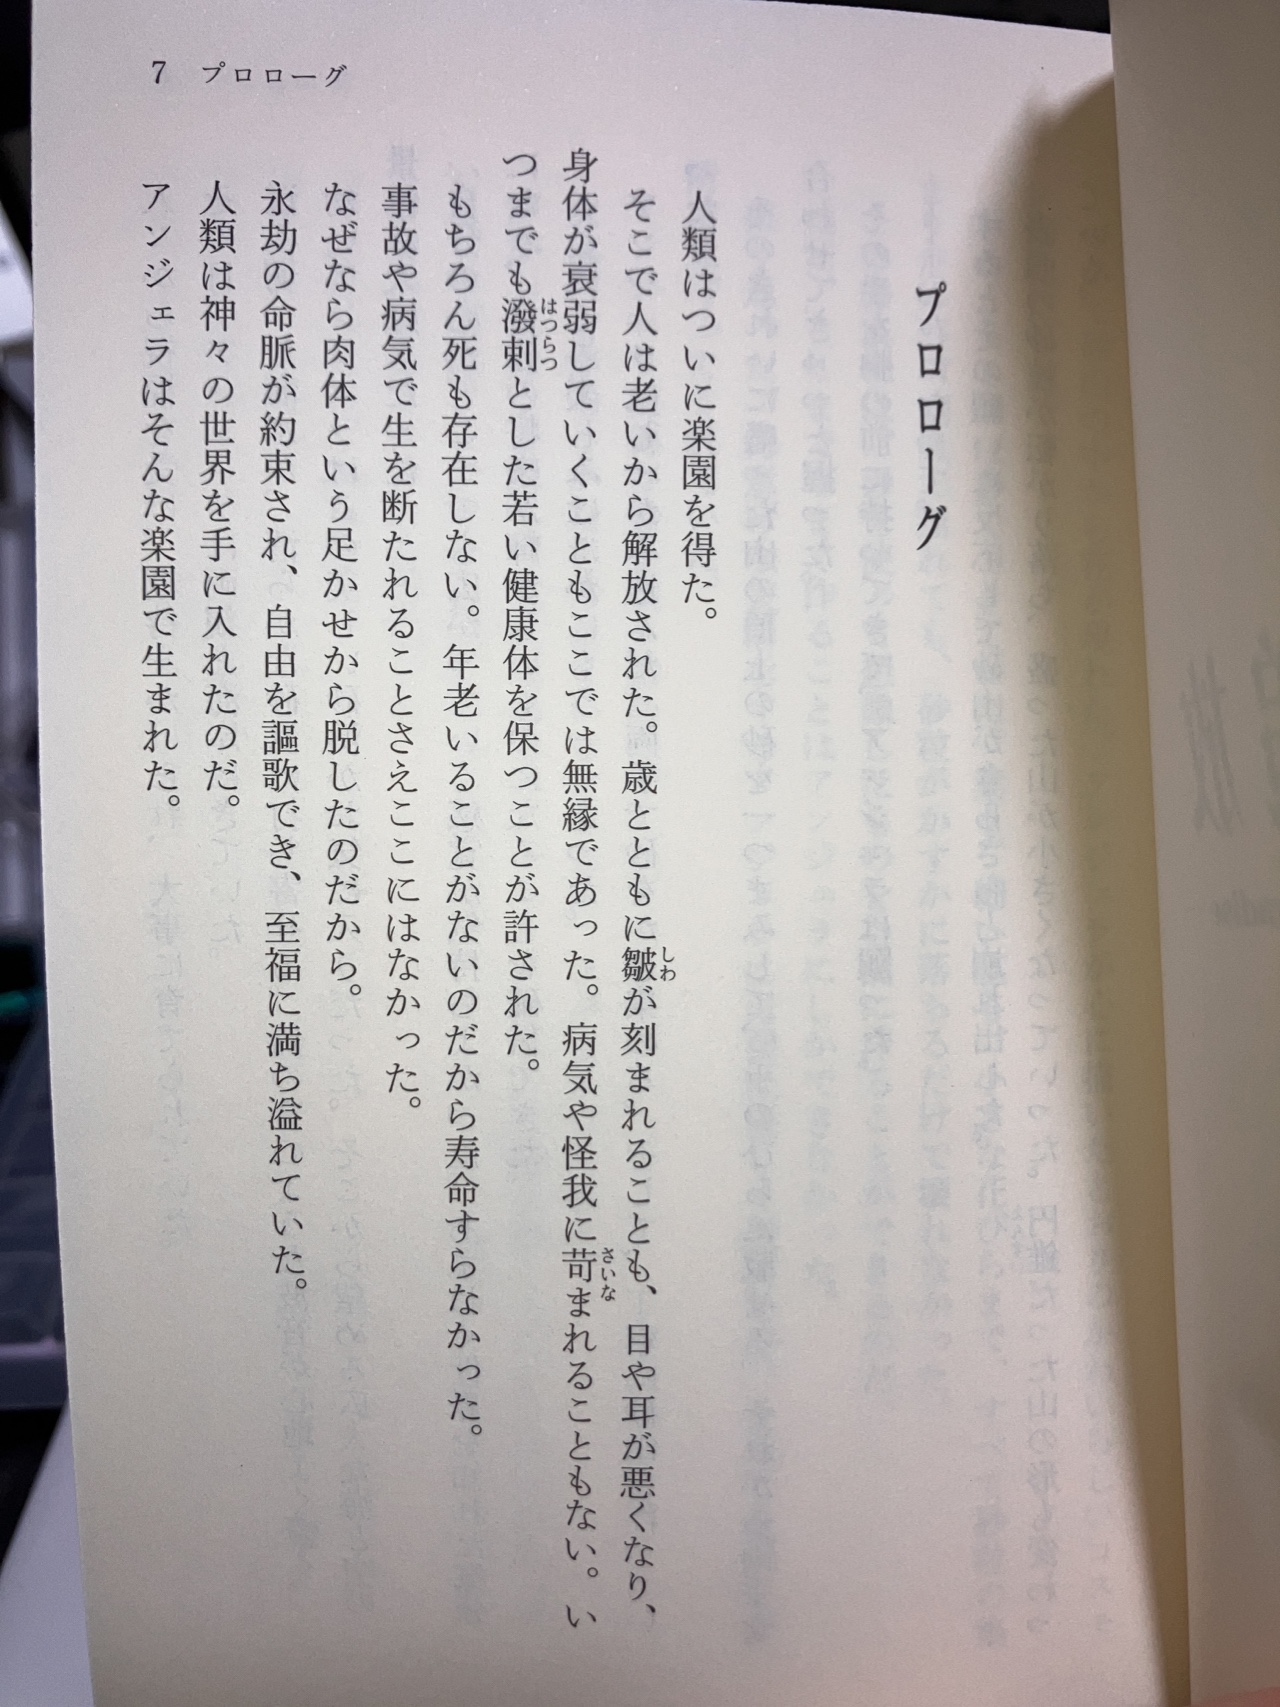 7 プロローグ
プロローグ
人類はついに楽園を得た。
そこで人は老いから解放された。歳とともに皺が刻まれることも、目や耳が悪くなり、
しわ
身体が衰弱していくこともここでは無縁であった。病気や怪我に苛まれることもない。い
さいな
つまでも潑剌とした若い健康体を保つことが許された。
はつらつ
もちろん死も存在しない。年老いることがないのだから寿命すらなかった。
事故や病気で生を断たれることさえここにはなかった。
なぜなら肉体という足かせから脱したのだから。
永劫の命脈が約束され、自由を謳歌でき、至福に満ち溢れていた。
人類は神々の世界を手に入れたのだ。
アンジェラはそんな楽園で生まれた。